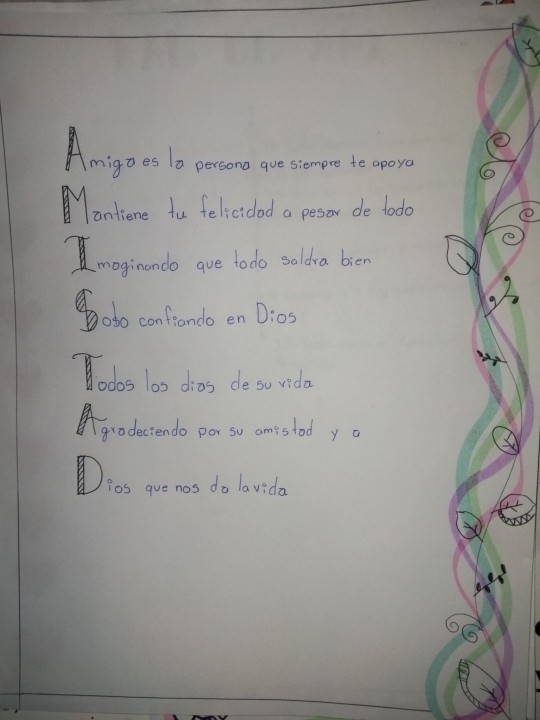 Amiga es la persona que siempre te apoya
Mantiene tu felicidad a pesar de todo
Imaginando que todo saldra bien
Solo confiando en Dios
Todos los dias de su vida
Agradeciendo por su amistad y a
Dios que nos da la vida